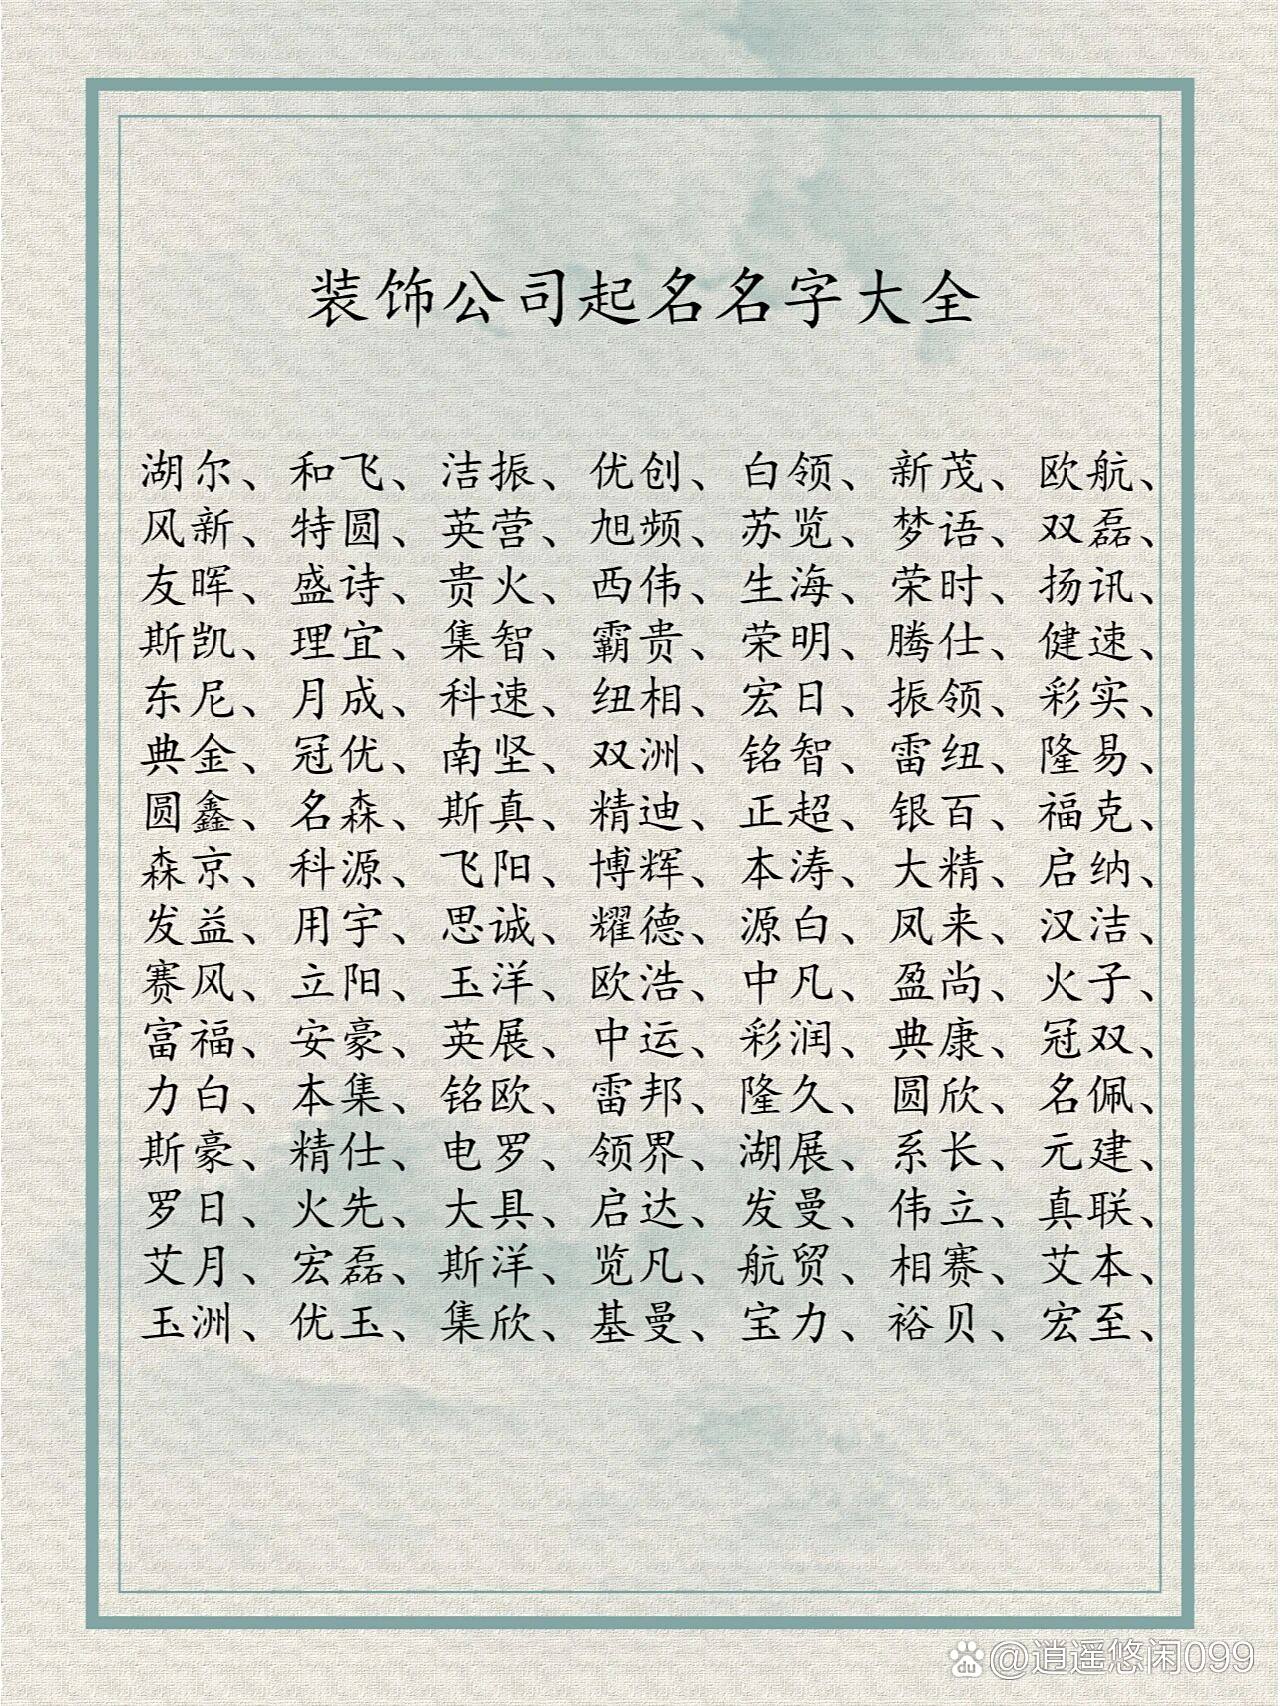 装饰公司起名名字大全
湖尔、和飞、洁振、优创、白领、新茂、欧航、
风新、特圆、英营、旭频、苏览、梦语、双磊、
友晖、盛诗、贵火、西伟、生海、荣时、扬讯、
斯凯、理宜、集智、霸贵、荣明、腾仕、健速、
东尼、月成、科速、纽相、宏日、振领、彩实、
典金、冠优、南坚、双洲、铭智、雷纽、隆易、
圆鑫、名森、斯真、精迪、正超、银百、福克、
森京、科源、飞阳、博辉、本涛、大精、启纳、
发益、用宇、思诚、耀德、源白、凤来、汉洁、
赛风、立阳、玉洋、欧浩、中凡、盈尚、火子、
富福、安豪、英展、中运、彩润、典康、冠双、
力白、本集、铭欧、雷邦、隆久、圆欣、名佩、
斯豪、精仕、电罗、领界、湖展、系长、元建、
罗日、火先、大具、启达、发曼、伟立、真联、
艾月、宏磊、斯洋、览凡、航贸、相赛、艾本、
玉洲、优玉、集欣、基曼、宝力、裕贝、宏至、
du @逍遥悠闲099